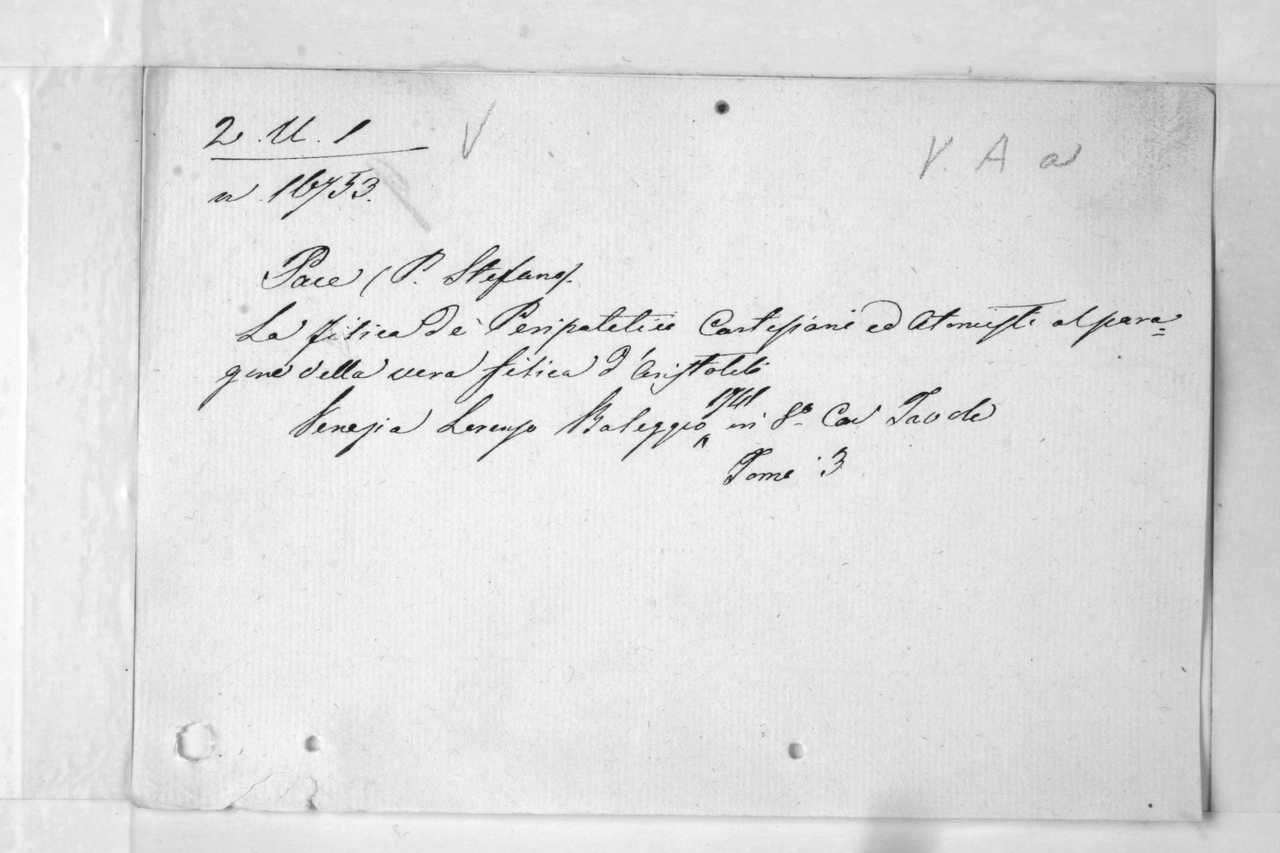 2. U. 1 V V. A a
n. 16753.
Pace (P. Stefano).
La fisica de' Peripatetici Cartesiani ed Atomisti al para=
gone della vera fisica d'Aristotele
Venezia Lorenzo Baseggio 1741 in 8º Con Tavole
Tomi 3